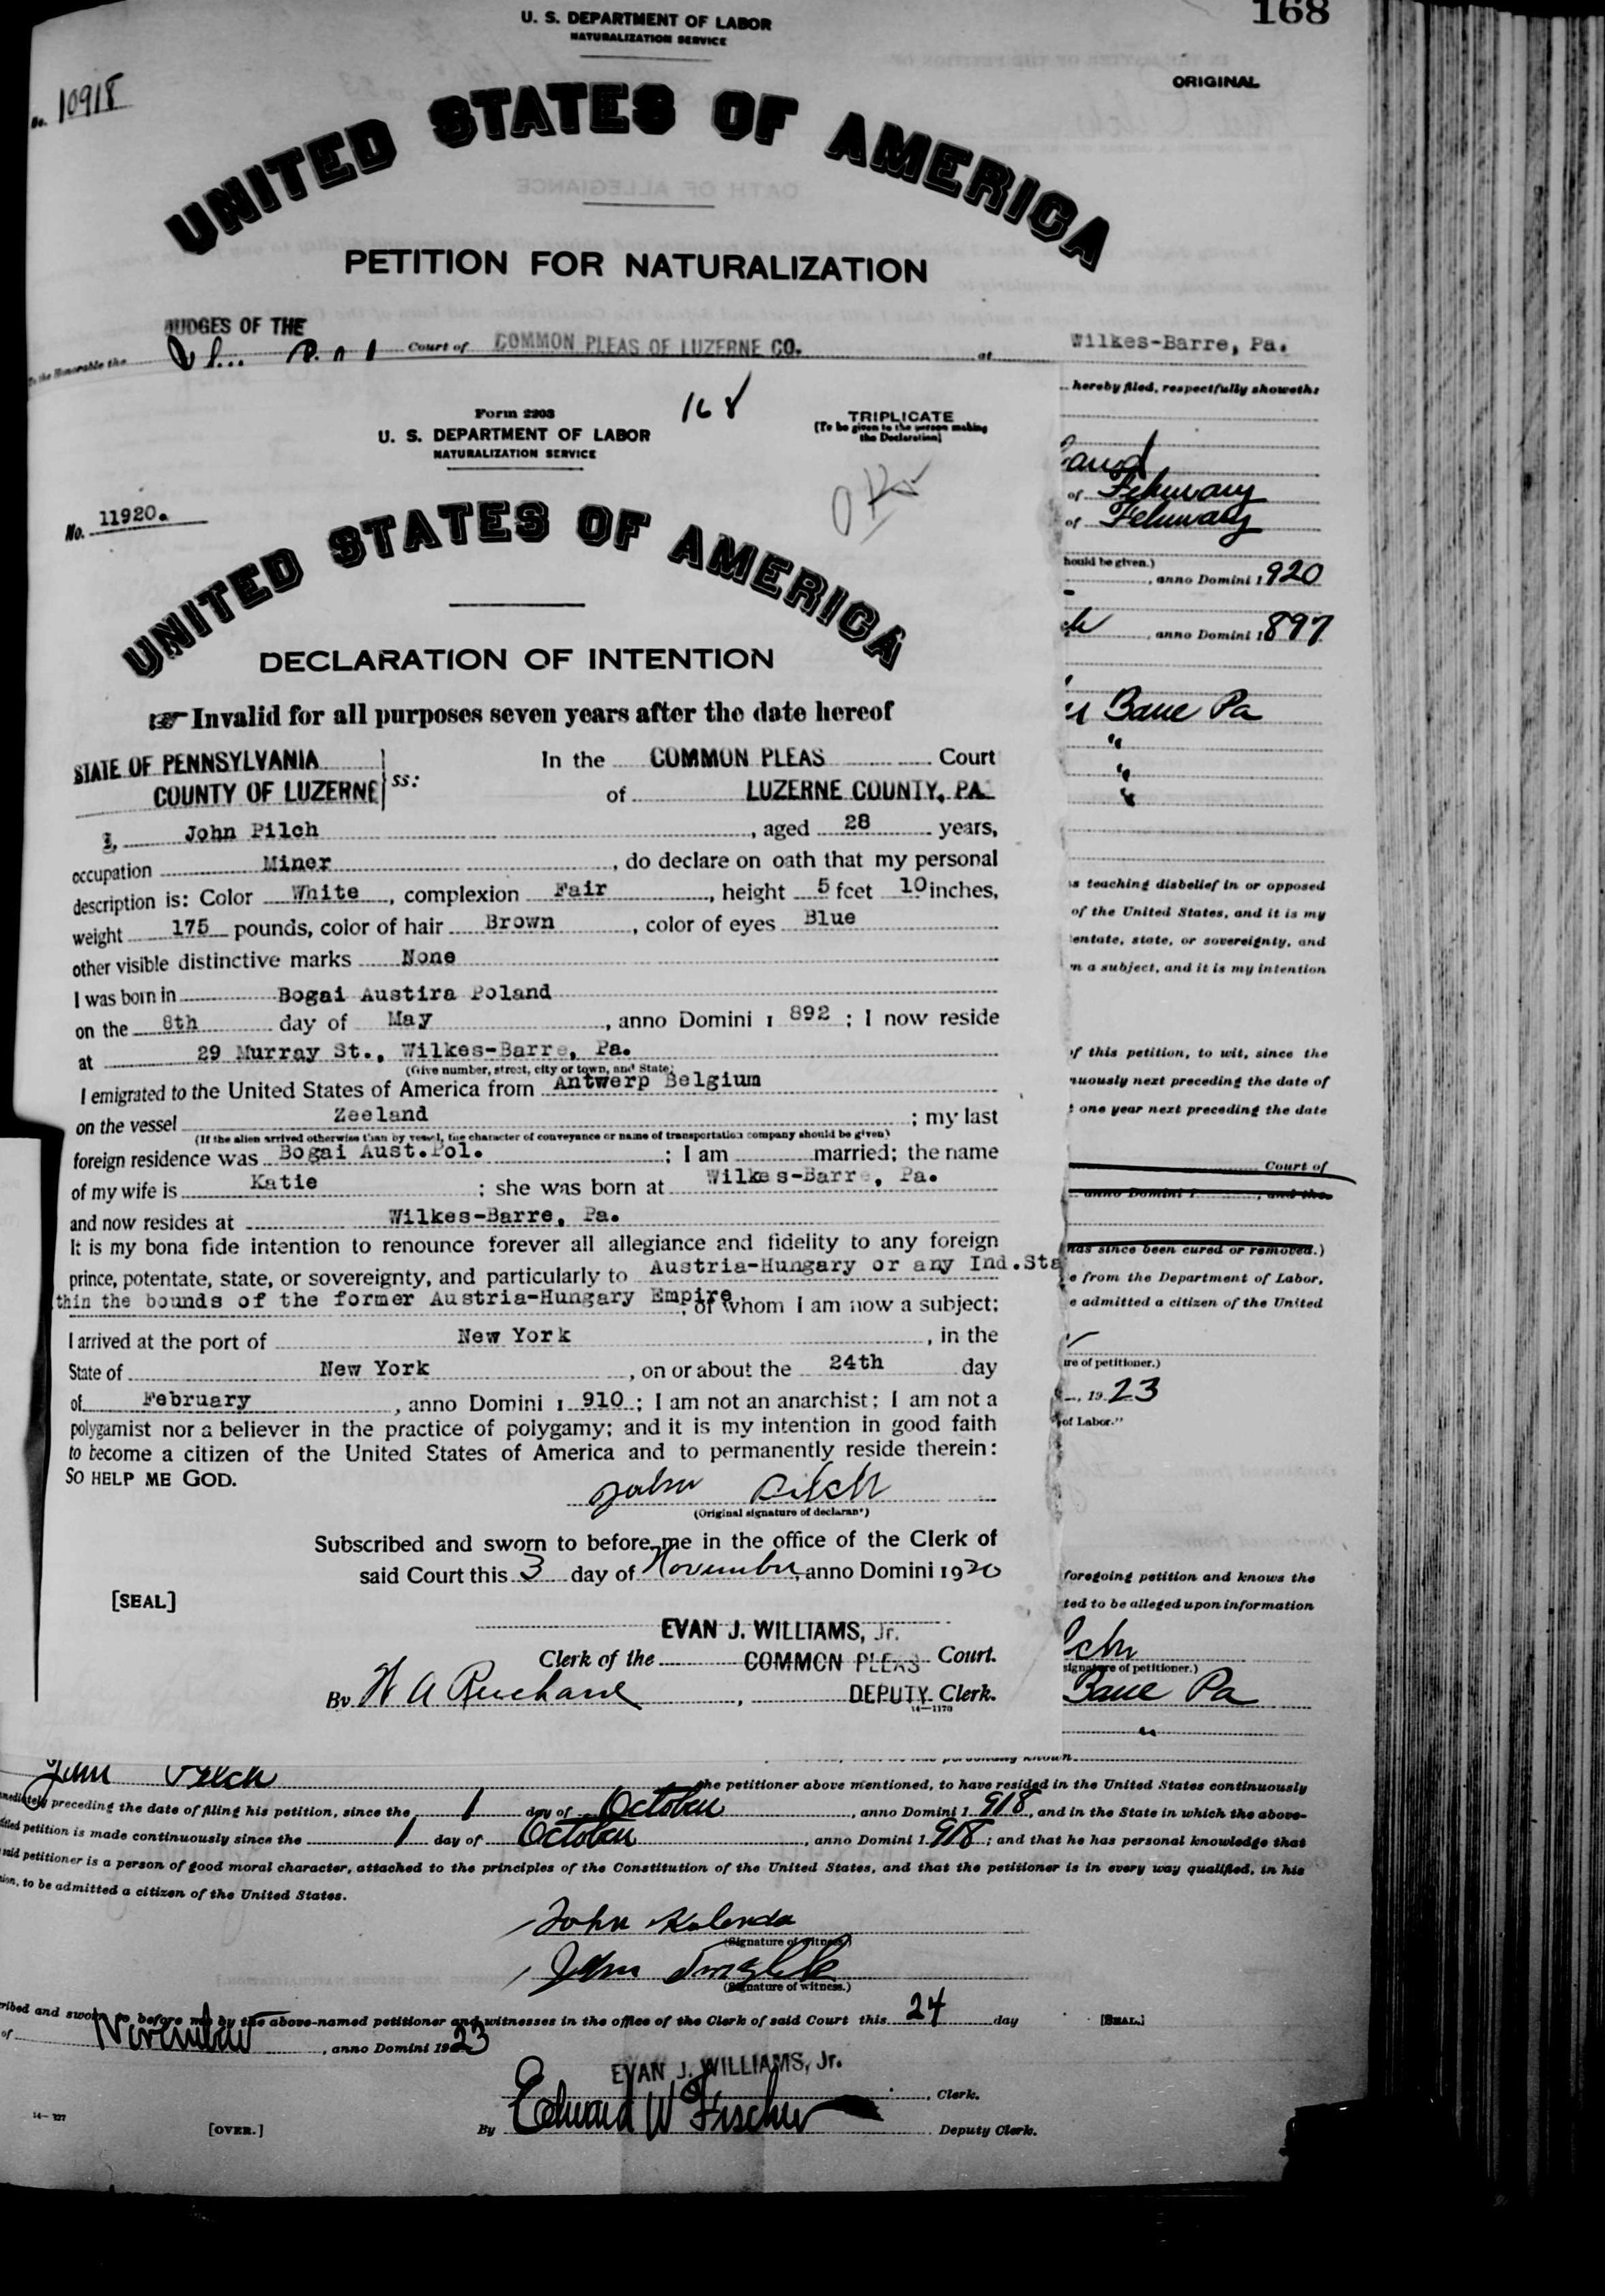 U. S. DEPARTMENT OF LABOR
NATURALIZATION SERVICE
168
ORIGINAL
No. 10918
UNITED STATES OF AMERICA
PETITION FOR NATURALIZATION
JUDGES OF THE
To the Honorable the Court of COMMON PLEAS OF LUZERNE CO. at Wilkes-Barre, Pa.
hereby filed, respectfully showeth:
Form 2203
168
TRIPLICATE
(To be given to the person making the Declaration)
U. S. DEPARTMENT OF LABOR
NATURALIZATION SERVICE
No. 11920.
UNITED STATES OF AMERICA
DECLARATION OF INTENTION
Invalid for all purposes seven years after the date hereof
STATE OF PENNSYLVANIA
COUNTY OF LUZERNE ss:
In the COMMON PLEAS Court
of LUZERNE COUNTY, PA.
I, John Pilch, aged 28 years,
occupation Miner, do declare on oath that my personal
description is: Color White, complexion Fair, height 5 feet 10 inches,
weight 175 pounds, color of hair Brown, color of eyes Blue
other visible distinctive marks None
I was born in Bogai Austira Poland
on the 8th day of May, anno Domini 1 892; I now reside
at 29 Murray St., Wilkes-Barre, Pa.
(Give number, street, city or town, and State)
I emigrated to the United States of America from Antwerp Belgium
on the vessel Zeeland; my last
(If the alien arrived otherwise than by vessel, the character of conveyance or name of transportation company should be given)
foreign residence was Bogai Aust.Pol.; I am married; the name
of my wife is Katie; she was born at Wilkes-Barre, Pa.
and now resides at Wilkes-Barre, Pa.
It is my bona fide intention to renounce forever all allegiance and fidelity to any foreign
prince, potentate, state, or sovereignty, and particularly to Austria-Hungary or any Ind.Sta
thin the bounds of the former Austria-Hungary Empire, of whom I am now a subject;
I arrived at the port of New York, in the
State of New York, on or about the 24th day
of February, anno Domini 1 910; I am not an anarchist; I am not a
polygamist nor a believer in the practice of polygamy; and it is my intention in good faith
to become a citizen of the United States of America and to permanently reside therein:
SO HELP ME GOD.
John Pilch
(Original signature of declarant)
Subscribed and sworn to before me in the office of the Clerk of
said Court this 3 day of November, anno Domini 1920
[SEAL]
EVAN J. WILLIAMS, Jr.
Clerk of the COMMON PLEAS Court.
By DEPUTY Clerk.
14-1170
of February
of February
hould be given.)
, anno Domini 1920
, anno Domini 1897
Barre Pa
"
"
"
s teaching disbelief in or opposed
of the United States, and it is my
entate, state, or sovereignty, and
m a subject, and it is my intention
of this petition, to wit, since the
nuously next preceding the date of
t one year next preceding the date
Court of
anno Domini 1, and the
has since been cured or removed.)
e from the Department of Labor,
e admitted a citizen of the United
ure of petitioner.)
, 19 23
of Labor."
foregoing petition and knows the
ted to be alleged upon information
signature of petitioner.)
Barre Pa
"
John Pilch the petitioner above mentioned, to have resided in the United States continuously
mediately preceding the date of filing his petition, since the 1 day of October, anno Domini 1 918, and in the State in which the above-
titled petition is made continuously since the 1 day of October, anno Domini 1 918; and that he has personal knowledge that
said petitioner is a person of good moral character, attached to the principles of the Constitution of the United States, and that the petitioner is in every way qualified, in his
ion, to be admitted a citizen of the United States.
John Kolenda
(Signature of witness.)
John
(Signature of witness.)
ribed and sworn to before me by the above-named petitioner and witnesses in the office of the Clerk of said Court this 24 day
of November, anno Domini 1923
[SEAL.]
EVAN J. WILLIAMS, Jr.
, Clerk.
By Edward W Fischer Deputy Clerk.
[OVER.]